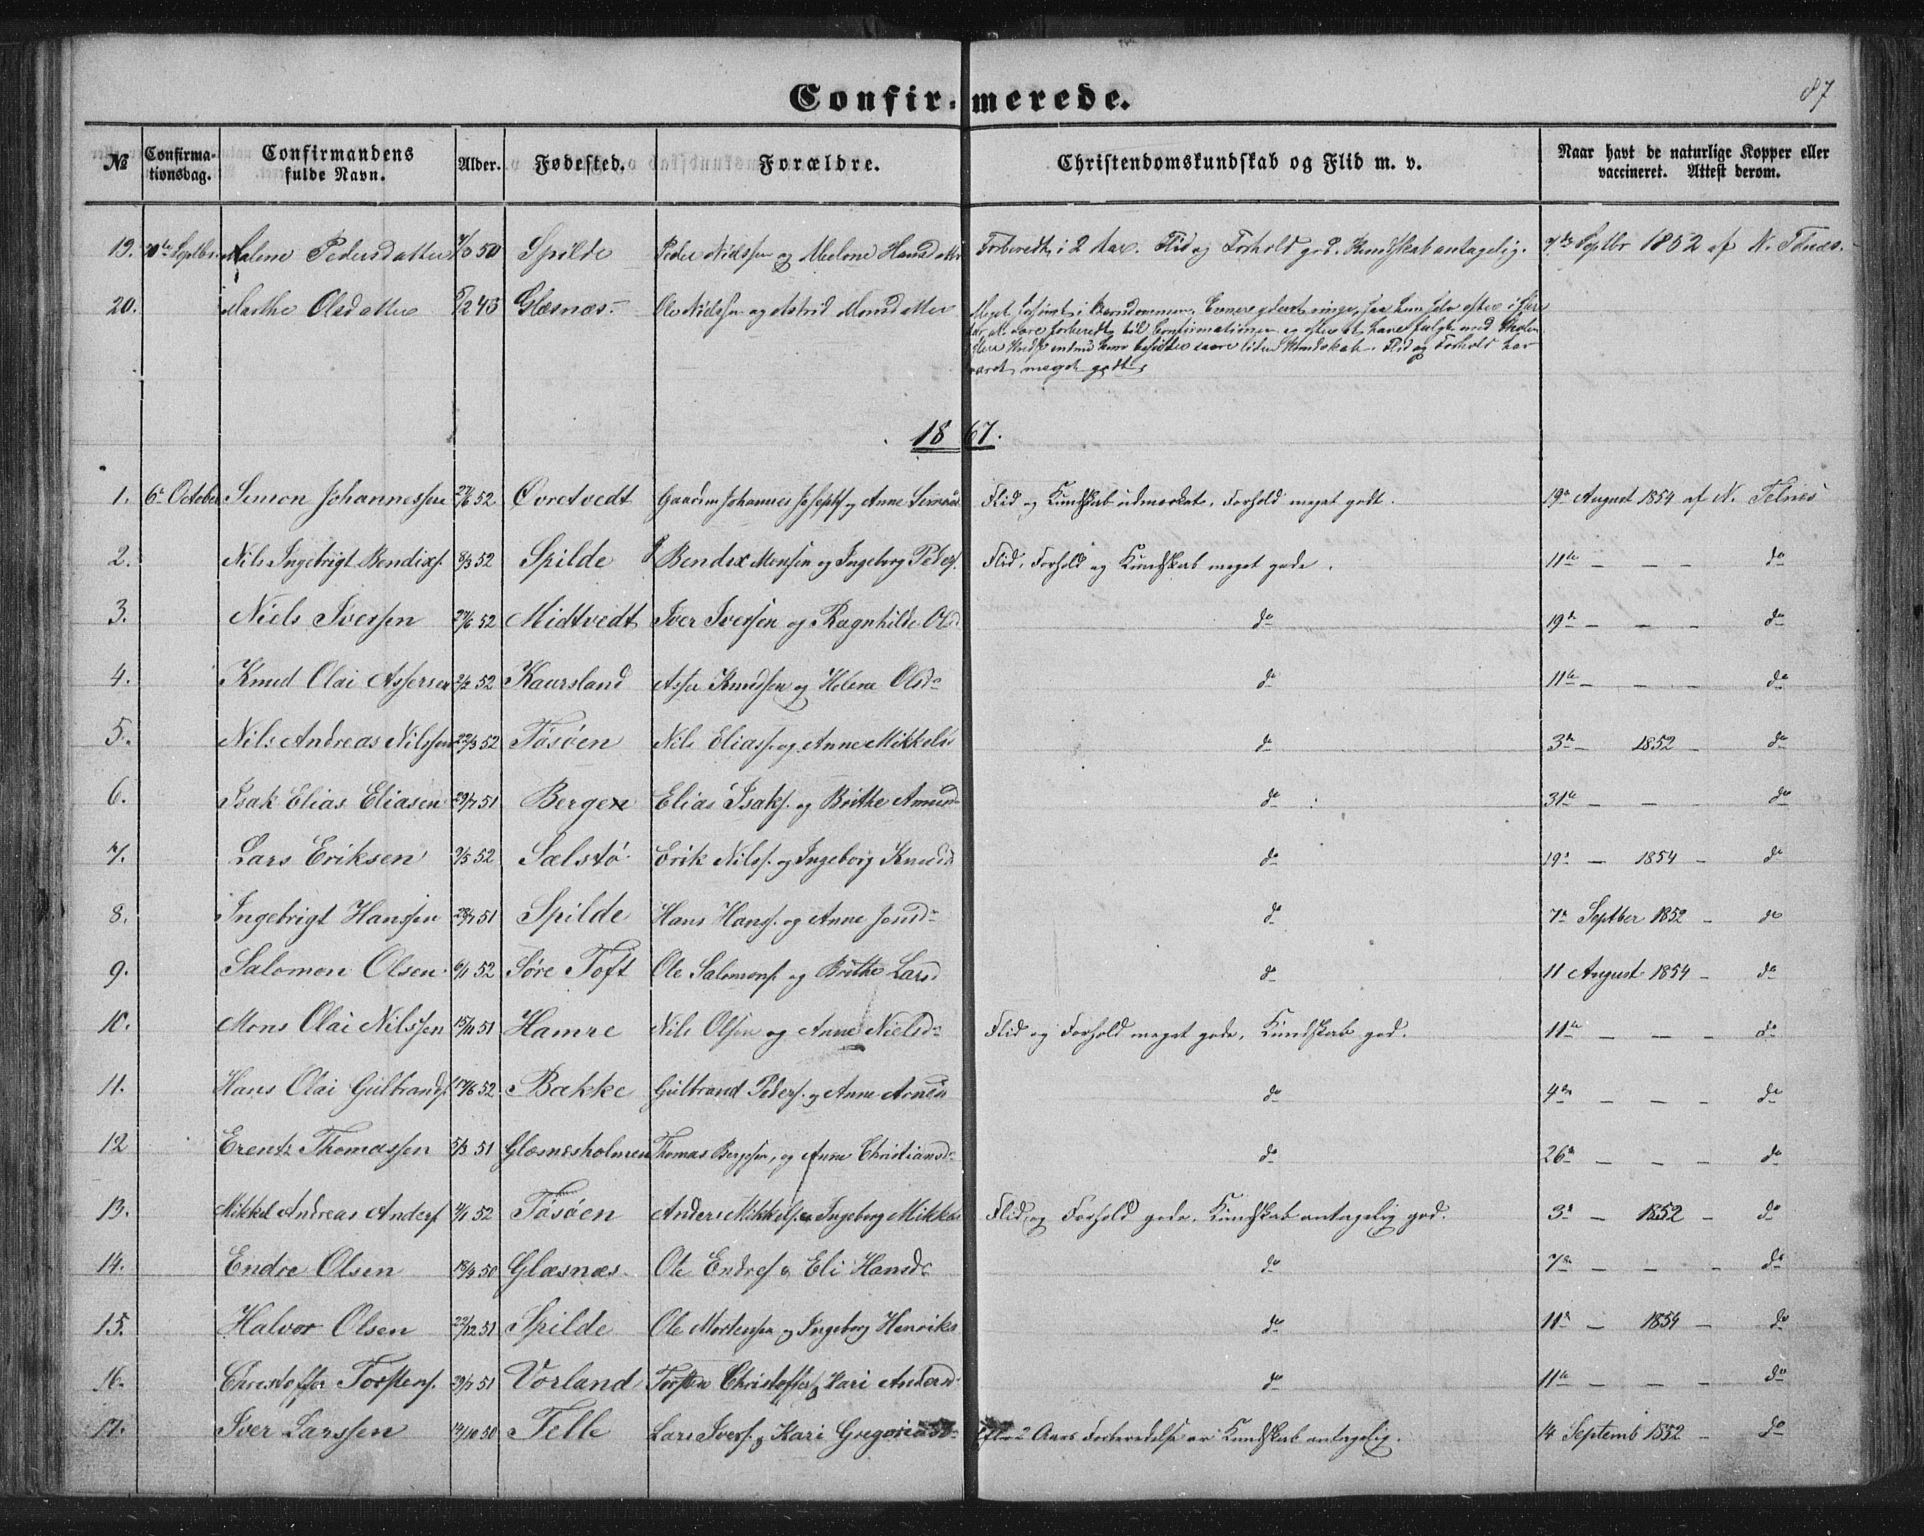 87
Confirmerede.
№ Confirmationsdag. Confirmandens fulde Navn. Alder. Fødested. Forældre. Christendomskundskab og Flid m. v. Naar havt de naturlige Kopper eller vaccineret. Attest derom.
19. Malene Pedersdatter 50 Spilde Peder Nielssen og Forberedt i 2 Aar. Flid og Forhold god. Kundskab antagelig. 7de Septbr 1852 af N.
20. Marthe Olsdatter Glæsnæs Ole Nielssen og Astrid Monsdatter
til Confirmationen og efter at have fulgt med
liden Kundskab. Flid og Forhold har
været meget godt.
1867.
1. 6te October Simon Johannessen 27/6 52 Øvretvedt Gaardm Johannes Josephs. og Anne Flid og Kundskab udmærket, Forhold meget godt. 19de August 1854 af N. Telnes
2. Nils Ingebrigt Bendixs. 8/3 52 Spilde Bendix Monsen og Ingeborg Peders. Flid, Forhold og Kundskab meget gode. 11te — — — do
3. Niels Iversen 27/6 52 Midtvedt Iver Iversen og Ragnhilde Olsd do 19de — — — do
4. Knud Olai Assersen 2/2 52 Kaursland Asser Knudssen og Helene Olsd. do 11te — — — do
5. Nils Andreas Nilssen 22/3 52 Tøsøen Nils Eliass. og Anne Mikkelsd do 3de — 1852 — do
6. Isak Elias Eliasen 29/7 51 Bergen Elias Isaks. og Brithe Amund do 31te — — — do
7. Lars Eriksen 9/5 52 Sælstø Erik Nilss. og Ingeborg Knudsd do 19de — 1854 — do
8. Ingebrigt Hanssen 28/7 51 Spilde Hans Hanss. og Anne Jonsd. do 7de Septber 1852 — do
9. Salomon Olsen 6/1 52 Søre Toft Ole Salomons. og Brithe Larsd do 11 August 1854 — do
10. Mons Olai Nilssen 15/11 51 Hamre Nils Olsen og Anne Nielsd. Flid og Forhold meget gode, Kundskab god. 11te — — — do
11. Hans Olai Gulbrands. 17/6 52 Bække Gulbrand Peders. og Anne Arnesd do 4de — — — do
12 Erentz Thomassen 5/3 51 Glæsnesholmen Thomas og Anne Christiansd. do 26de — — — do
13. Mikkel Andreas Anders. 4/1 52 Tøsøen Anders Mikkels. og Ingeborg Mikkelsd Flid og Forhold gode, Kundskab antagelig god. 3de — 1852 — do
14. Endre Olsen 18/9 50 Glæsnæs Ole Endres. og Eli Hansd. do 7de — — — do
15. Halvor Olsen 22/12 51 Spilde Ole Mortensen og Ingeborg Henriks do 11te — 1854 — do
16. Christoffer Torstens. 29/7 51 Vorland Torsten Christoffers. og Kari Andersd. do 11te — — — do
17. Iver Larssen 50 Telle Lars Ivers. og Kari Gregoriusd. Efter 2 Aars Forberedelse er Kundskab antagelig. 14 Septemb 1852 — do